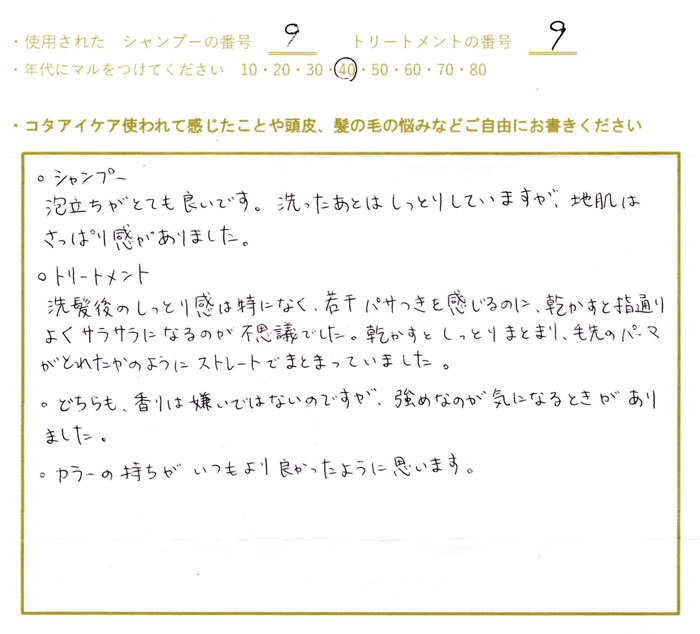 ・使用された　シャンプーの番号　9　トリートメントの番号　9
・年代にマルをつけてください　10・20・30・40・50・60・70・80
・コタアイケア使われて感じたことや頭皮、髪の毛の悩みなどご自由にお書きください
○ シャンプー
泡立ちがとても良いです。洗ったあとはしっとりしていますが、地肌は
さっぱり感がありました。
○ トリートメント
洗髪後のしっとり感は特になく、若干パサつきを感じるのに、乾かすと指通り
よくサラサラになるのが不思議でした。乾かすとしっとりまとまり、毛先のパーマ
がとれたかのようにストレートでまとまっていました。
○ どちらも、香りは嫌いではないのですが、強めなのが気になるときがあり
ました。
○ カラーの持ちがいつもより良かったように思います。